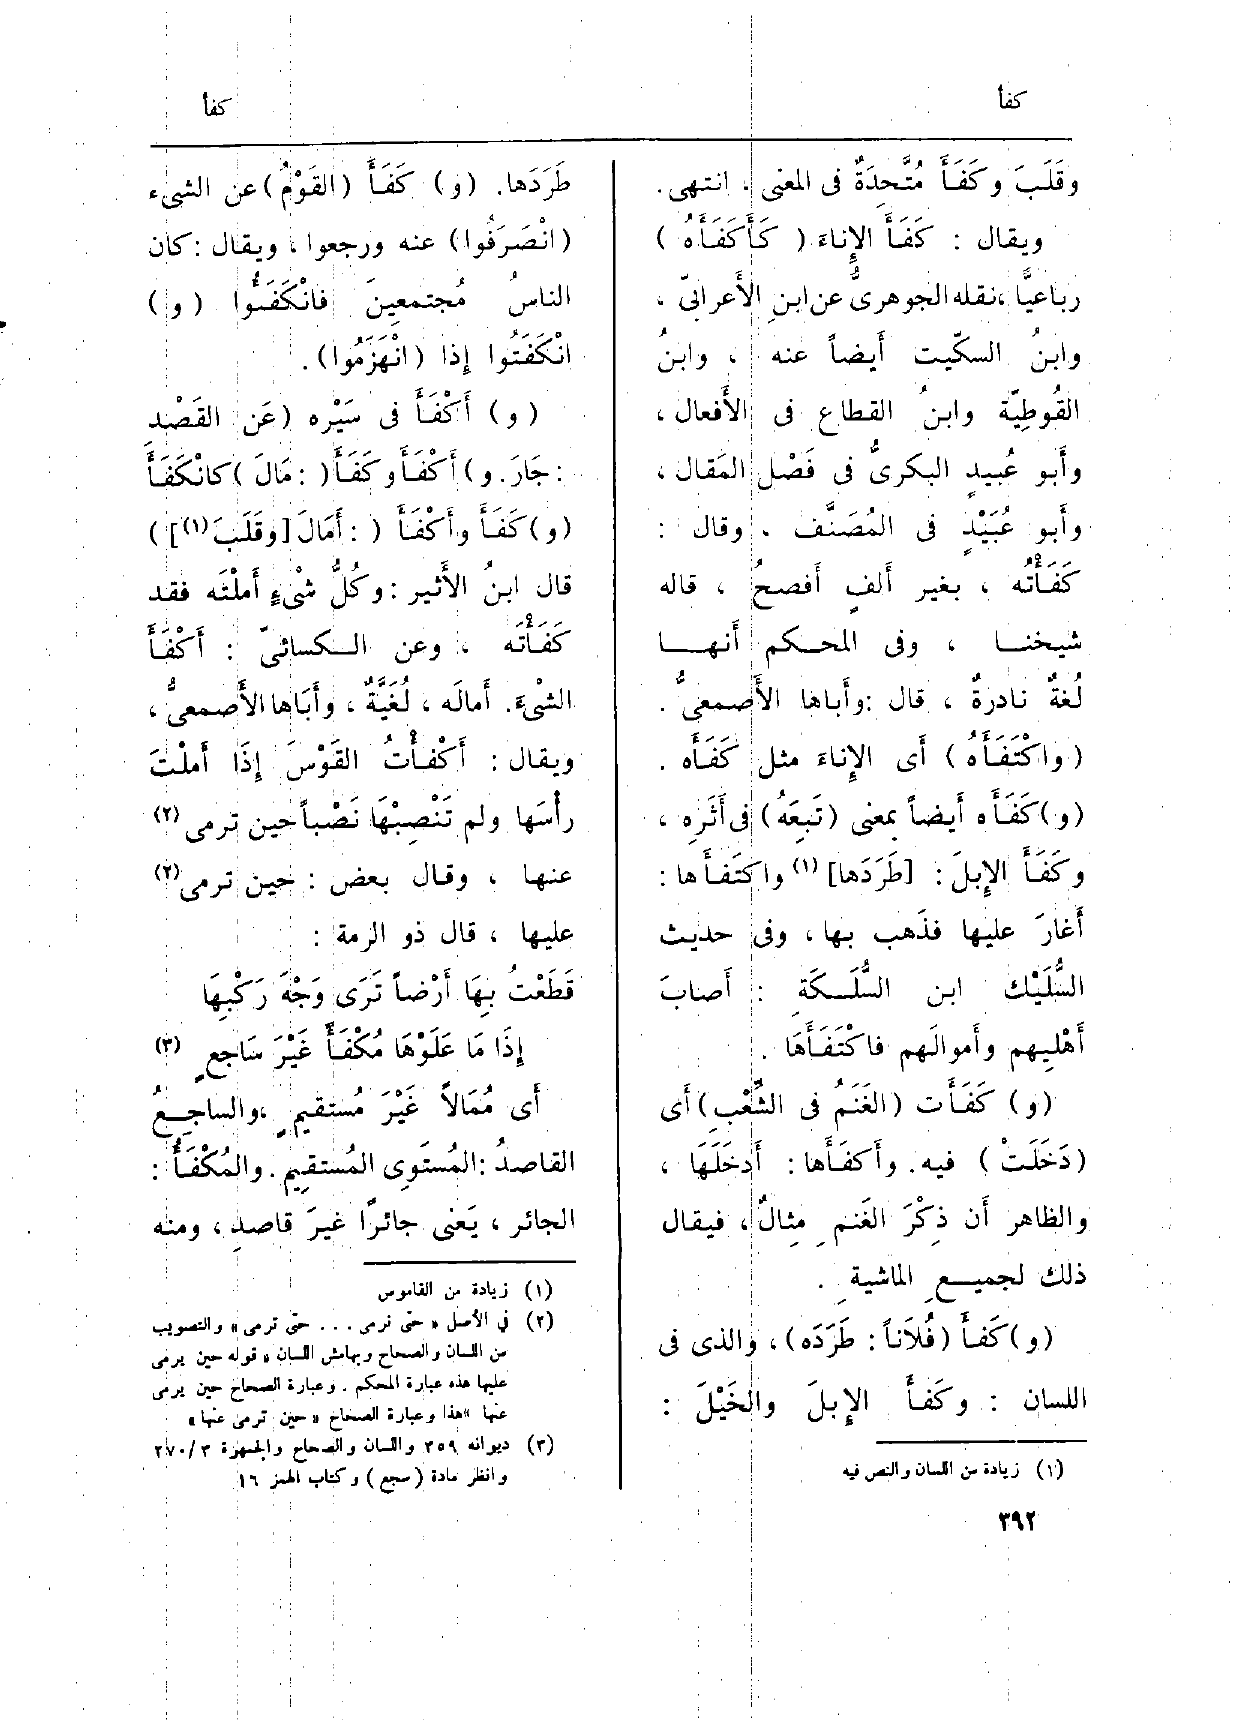 كفأ
كفأ
وقَلَبَ وكَفَأَ مُتَّحدَةٌ فى المعنى ، انتهى.
ويقال : كَفَأَ الإِناءَ (كَأَكفَأَه)
رباعيًّا ،نقله الجوهرىُّ عن ابنِ الأَعرابىّ ،
وابنُ السكّيت أَيضاً عنه ، وابنُ
القُوطِيَّة وابنُ القطاع فى الأَفعال ،
وأَبو عُبيدٍ البكرىُّ فى فَصْل المَقال ،
وأَبو عُبَيْدٍ فى المُصَنَّف . وقال :
كَفَأْتُه ، بغير أَلفٍ أَفصحُ ، قاله
شيخنا ، وفى المحكم أَنها
لُغةٌ نادرةٌ ، قال :وأَباها الأَصمعىُّ .
(واكْتَفَأَهُ) أَى الإِناءَ مثل كَفَأَه .
(و)كَفَأَه أَيضاً بمعنى (تَبِعَهُ) فى أَثَرِه ،
وكَفَأَ الإِبلَ : [طَرَدَها] (١) واكتَفَأَها :
أَغارَ عليها فذهب بها ، وفى حديث
السُّلَيْك ابن السُّلَكَةِ : أَصابَ
أَهْلِيهم وأَموالَهم فاكْتَفَأَهَا .
(و) كَفَأَت (الغَنَمُ فى الشِّعْبِ) أَى
(دَخَلَتْ) فيه. وأَكفَأَها : أَدخَلَهَا ،
والظاهر أَن ذِكْرَ الغَنمِ مِثالٌ ، فيقال
ذلك لجميعِ الماشيةِ .
(و)كَفأَ (فُلاَناً : طَرَدَه) ، والذى فى
اللسان : وكَفَأَ الإِبلَ والخَيْلَ :
(١) زيادة من اللسان والنص فيه
٣٩٢
طَرَدَها. (و) كَفَأَ (القَوْمُ) عن الشىءِ
(انْصَرَفُوا) عنه ورجعوا ، ويقال :كان
الناسُ مُجتمعِينَ فانْكَفَئُوا (و)
انْكَفَتُوا إِذا (انْهَزَمُوا) .
(و) أَكْفَأَ فى سَيْرِه (عَن القَصْد
: جَارَ. و) أَكْفَأَ وكَفَأَ ( : مَالَ) كانْكَفَأَ
(و) كَفَأَ وأَكْفَأَ ( : أَمَالَ [وقَلَبَ(١)])
قال ابنُ الأَثير : وكلُّ شْىءٍ أَملْتَه فقد
كَفَأْتَه ، وعن الكسائىّ : أَكْفَأَ
الشىْءَ. أَمالَه ، لُغَيَّةٌ ، وأَبَاها الأَصمعىُّ ،
ويقال : أَكْفأْتُ القَوْسَ إِذَا أَملْتَ
رأْسَها ولم تَنْصِبْهَا نَصْباً حين ترمى (٢)
عنها ، وقال بعض : حين ترمى(٢)
عليها ، قال ذو الرمة :
قَطَعْتُ بِهَا أَرْضاً تَرَى وَجْهَ رَكْبِهَا
إِذَا مَا عَلَوْهَا مُكْفَأً غَيْرَ سَاجِعٍ (٣)
أَى مُمَالاً غَيْرَ مُستقيمٍ ،والساجِعُ
القاصدُ :المُستَوِى المُستقِيم .والمُكْفَأُ :
الجائر ، يَعنى جائرًا غيرَ قاصدٍ ، ومنه
(١) زيادة من القاموس
(٢) في الأصل « حتى نرمى . . . حتى ترمى » والتصويب
من اللسان والصحاح وبهامش اللسان « قوله حين يرمى
عليها هذه عبارة المحكم . وعبارة الصحاح حين يرمى
عنها »هذا وعبارة الصحاح « حين ترمى عنها»
(٣) ديوانه ٣٥٩ واللسان والصحاح والجمهرة ٣/ ٢٧٠
وانظر مادة (سجع) وكتاب الهمز ١٦